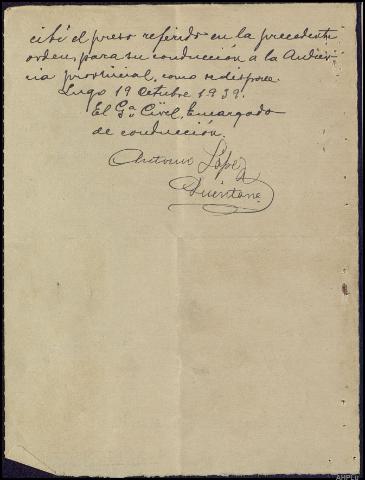 cibí el preso referido en la precedente
orden, para su conducción a la Audien-
cia provincial, como se dispone.
Lugo 19 Octubre 1939.
El Gª Civil, Encargado
de conducción.
Antonio López
Quintana
AHPLu